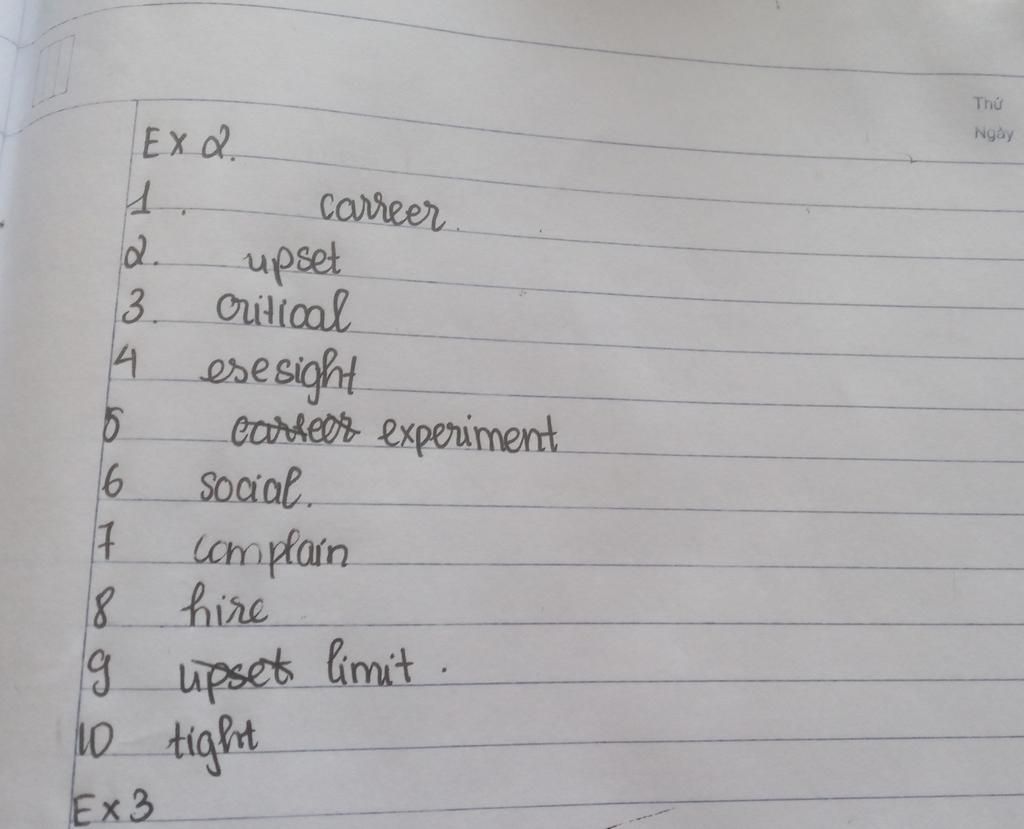 Thứ
Ngày
Ex 2.
1. carreer.
2. upset
3. critical
4 esesight
5 carreer experiment
6 social.
7 complain
8 hire
9 upset limit.
10 tight
Ex 3